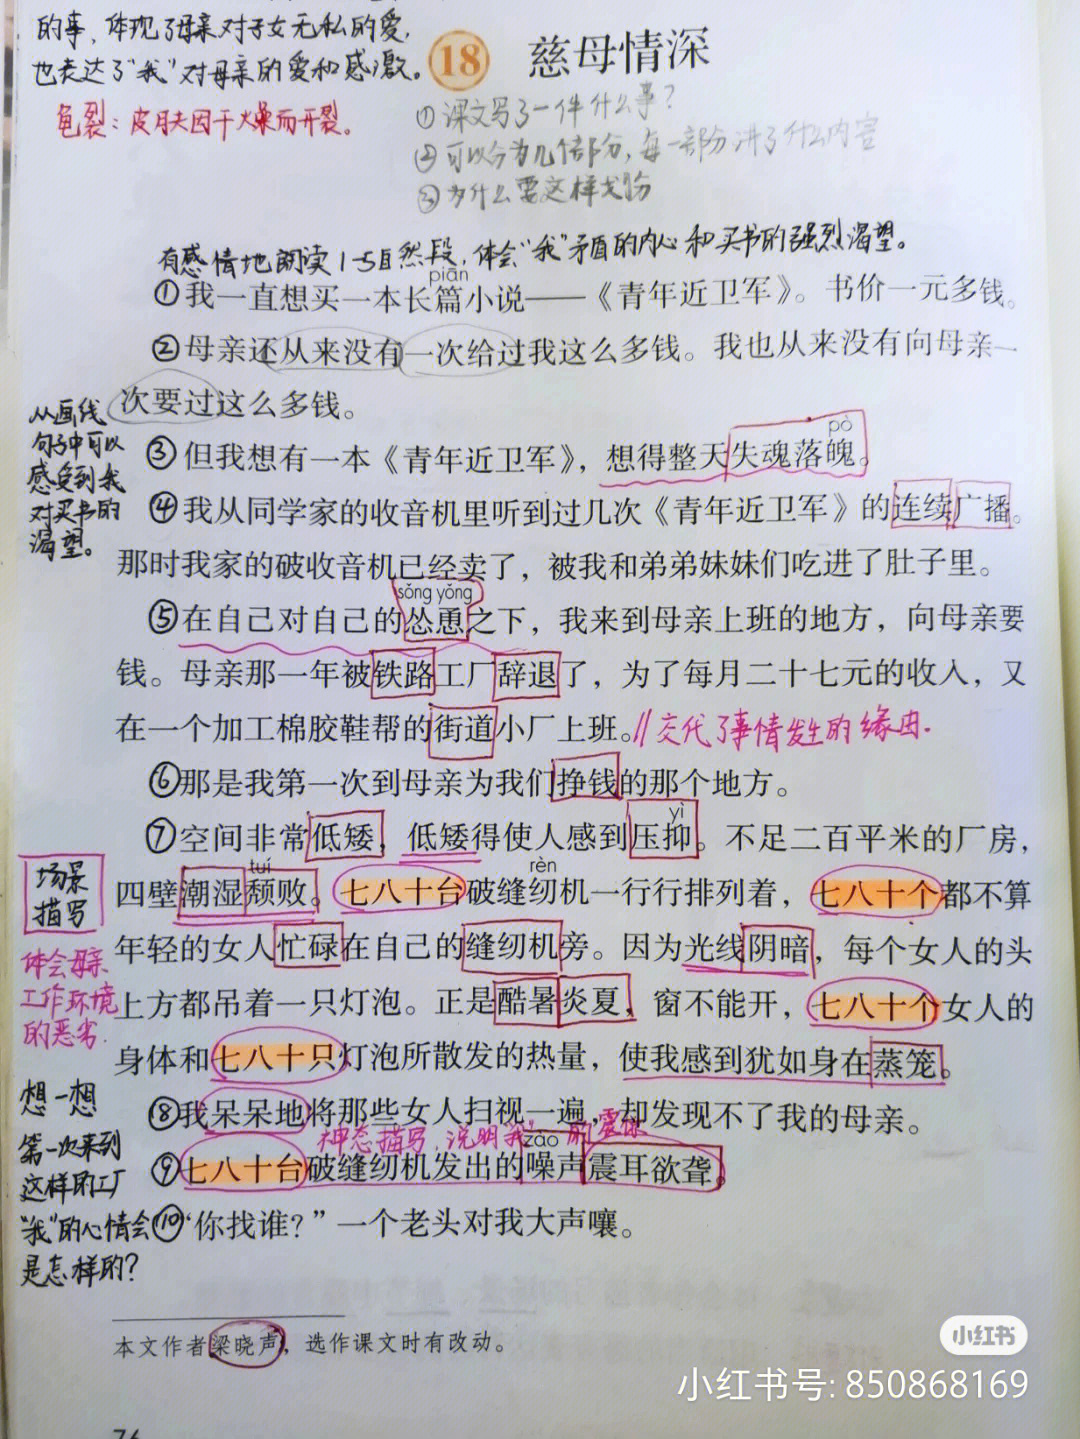 的事，体现了母亲对子女无私的爱，
也表达了“我”对母亲的爱和感激。
龟裂：皮肤因干燥而开裂。
18 慈母情深
①课文写了一件什么事？
②可以分为几个部分，每一部分讲了什么内容
③为什么要这样划分
有感情地朗读1-5自然段，体会“我”矛盾的内心和买书的强烈渴望。
piān
①我一直想买一本长篇小说——《青年近卫军》。书价一元多钱。
②母亲还从来没有一次给过我这么多钱。我也从来没有向母亲一
次要过这么多钱。
从画线
句子中可以
感受到我
对买书的
渴望。
pò
③但我想有一本《青年近卫军》，想得整天失魂落魄。
④我从同学家的收音机里听到过几次《青年近卫军》的连续广播。
那时我家的破收音机已经卖了，被我和弟弟妹妹们吃进了肚子里。
sǒng yǒng
⑤在自己对自己的怂恿之下，我来到母亲上班的地方，向母亲要
钱。母亲那一年被铁路工厂辞退了，为了每月二十七元的收入，又
在一个加工棉胶鞋帮的街道小厂上班。//交代了事情发生的缘由.
⑥那是我第一次到母亲为我们挣钱的那个地方。
yì
⑦空间非常低矮，低矮得使人感到压抑。不足二百平米的厂房，
tuí rèn
四壁潮湿颓败。七八十台破缝纫机一行行排列着，七八十个都不算
年轻的女人忙碌在自己的缝纫机旁。因为光线阴暗，每个女人的头
上方都吊着一只灯泡。正是酷暑炎夏，窗不能开，七八十个女人的
身体和七八十只灯泡所散发的热量，使我感到犹如身在蒸笼。
场景
描写
体会母亲
工作环境
的恶劣.
⑧我呆呆地将那些女人扫视一遍，却发现不了我的母亲。
神态描写，说明“我”的震惊
zào
⑨七八十台破缝纫机发出的噪声震耳欲聋。
⑩“你找谁？”一个老头对我大声嚷。
想一想
第一次来到
这样的工厂
“我”的心情会
是怎样的？
本文作者梁晓声，选作课文时有改动。
小红书
小红书号: 850868169
76